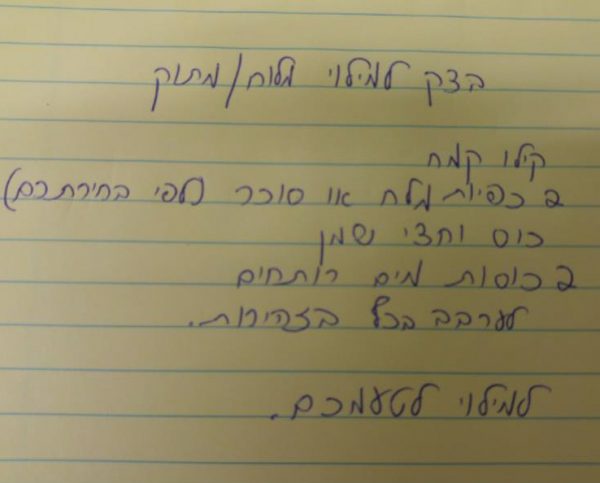 בצק למילוי מלוח/מתוק
קילו קמח
2 כפיות מלח או סוכר (לפי בחירתכם)
כוס וחצי שמן
2 כוסות מים רותחים
לערבב בכף בזהירות.
למילוי לטעמכם.